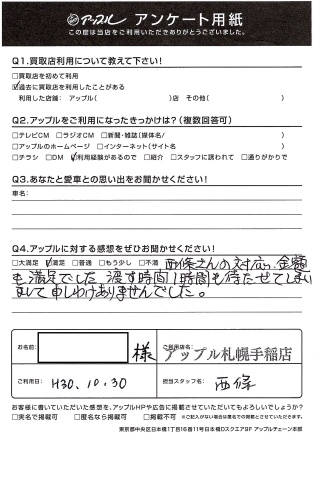 アップル アンケート用紙
この度は当店をご利用いただきありがとうございました。
Q1.買取店利用について教えて下さい!
□買取店を初めて利用
☑過去に買取店を利用したことがある
利用した店舗: アップル( )店 その他( )
Q2.アップルをご利用になったきっかけは?(複数回答可)
□テレビCM □ラジオCM □新聞・雑誌(媒体名/ )
□アップルのホームページ □インターネット(サイト名 )
□チラシ □DM ☑利用経験があるので □紹介 □スタッフに誘われて □通りがかりで
Q3.あなたと愛車との思い出をお聞かせください!
車名:
Q4.アップルに対する感想をぜひお聞かせください!
□大満足 ☑満足 □普通 □もう少し □不満 西條さんの対応、金額
も満足でした 渡す時間1時間も待たせてしまい
まして申しわけありませんでした。
お名前: 様
ご利用店名: アップル札幌手稲店
ご利用日: H30.10.30
担当スタッフ名: 西條
お客様に書いていただいた感想を、アップルHPや広告に掲載させていただいてもよろしいでしょうか?
□実名で掲載可 □匿名なら掲載可 □掲載不可 ※ご記入がない場合は匿名での掲載とさせていただきます。
東京都中央区日本橋1丁目16番11号日本橋Dスクエア9F アップルチェーン本部